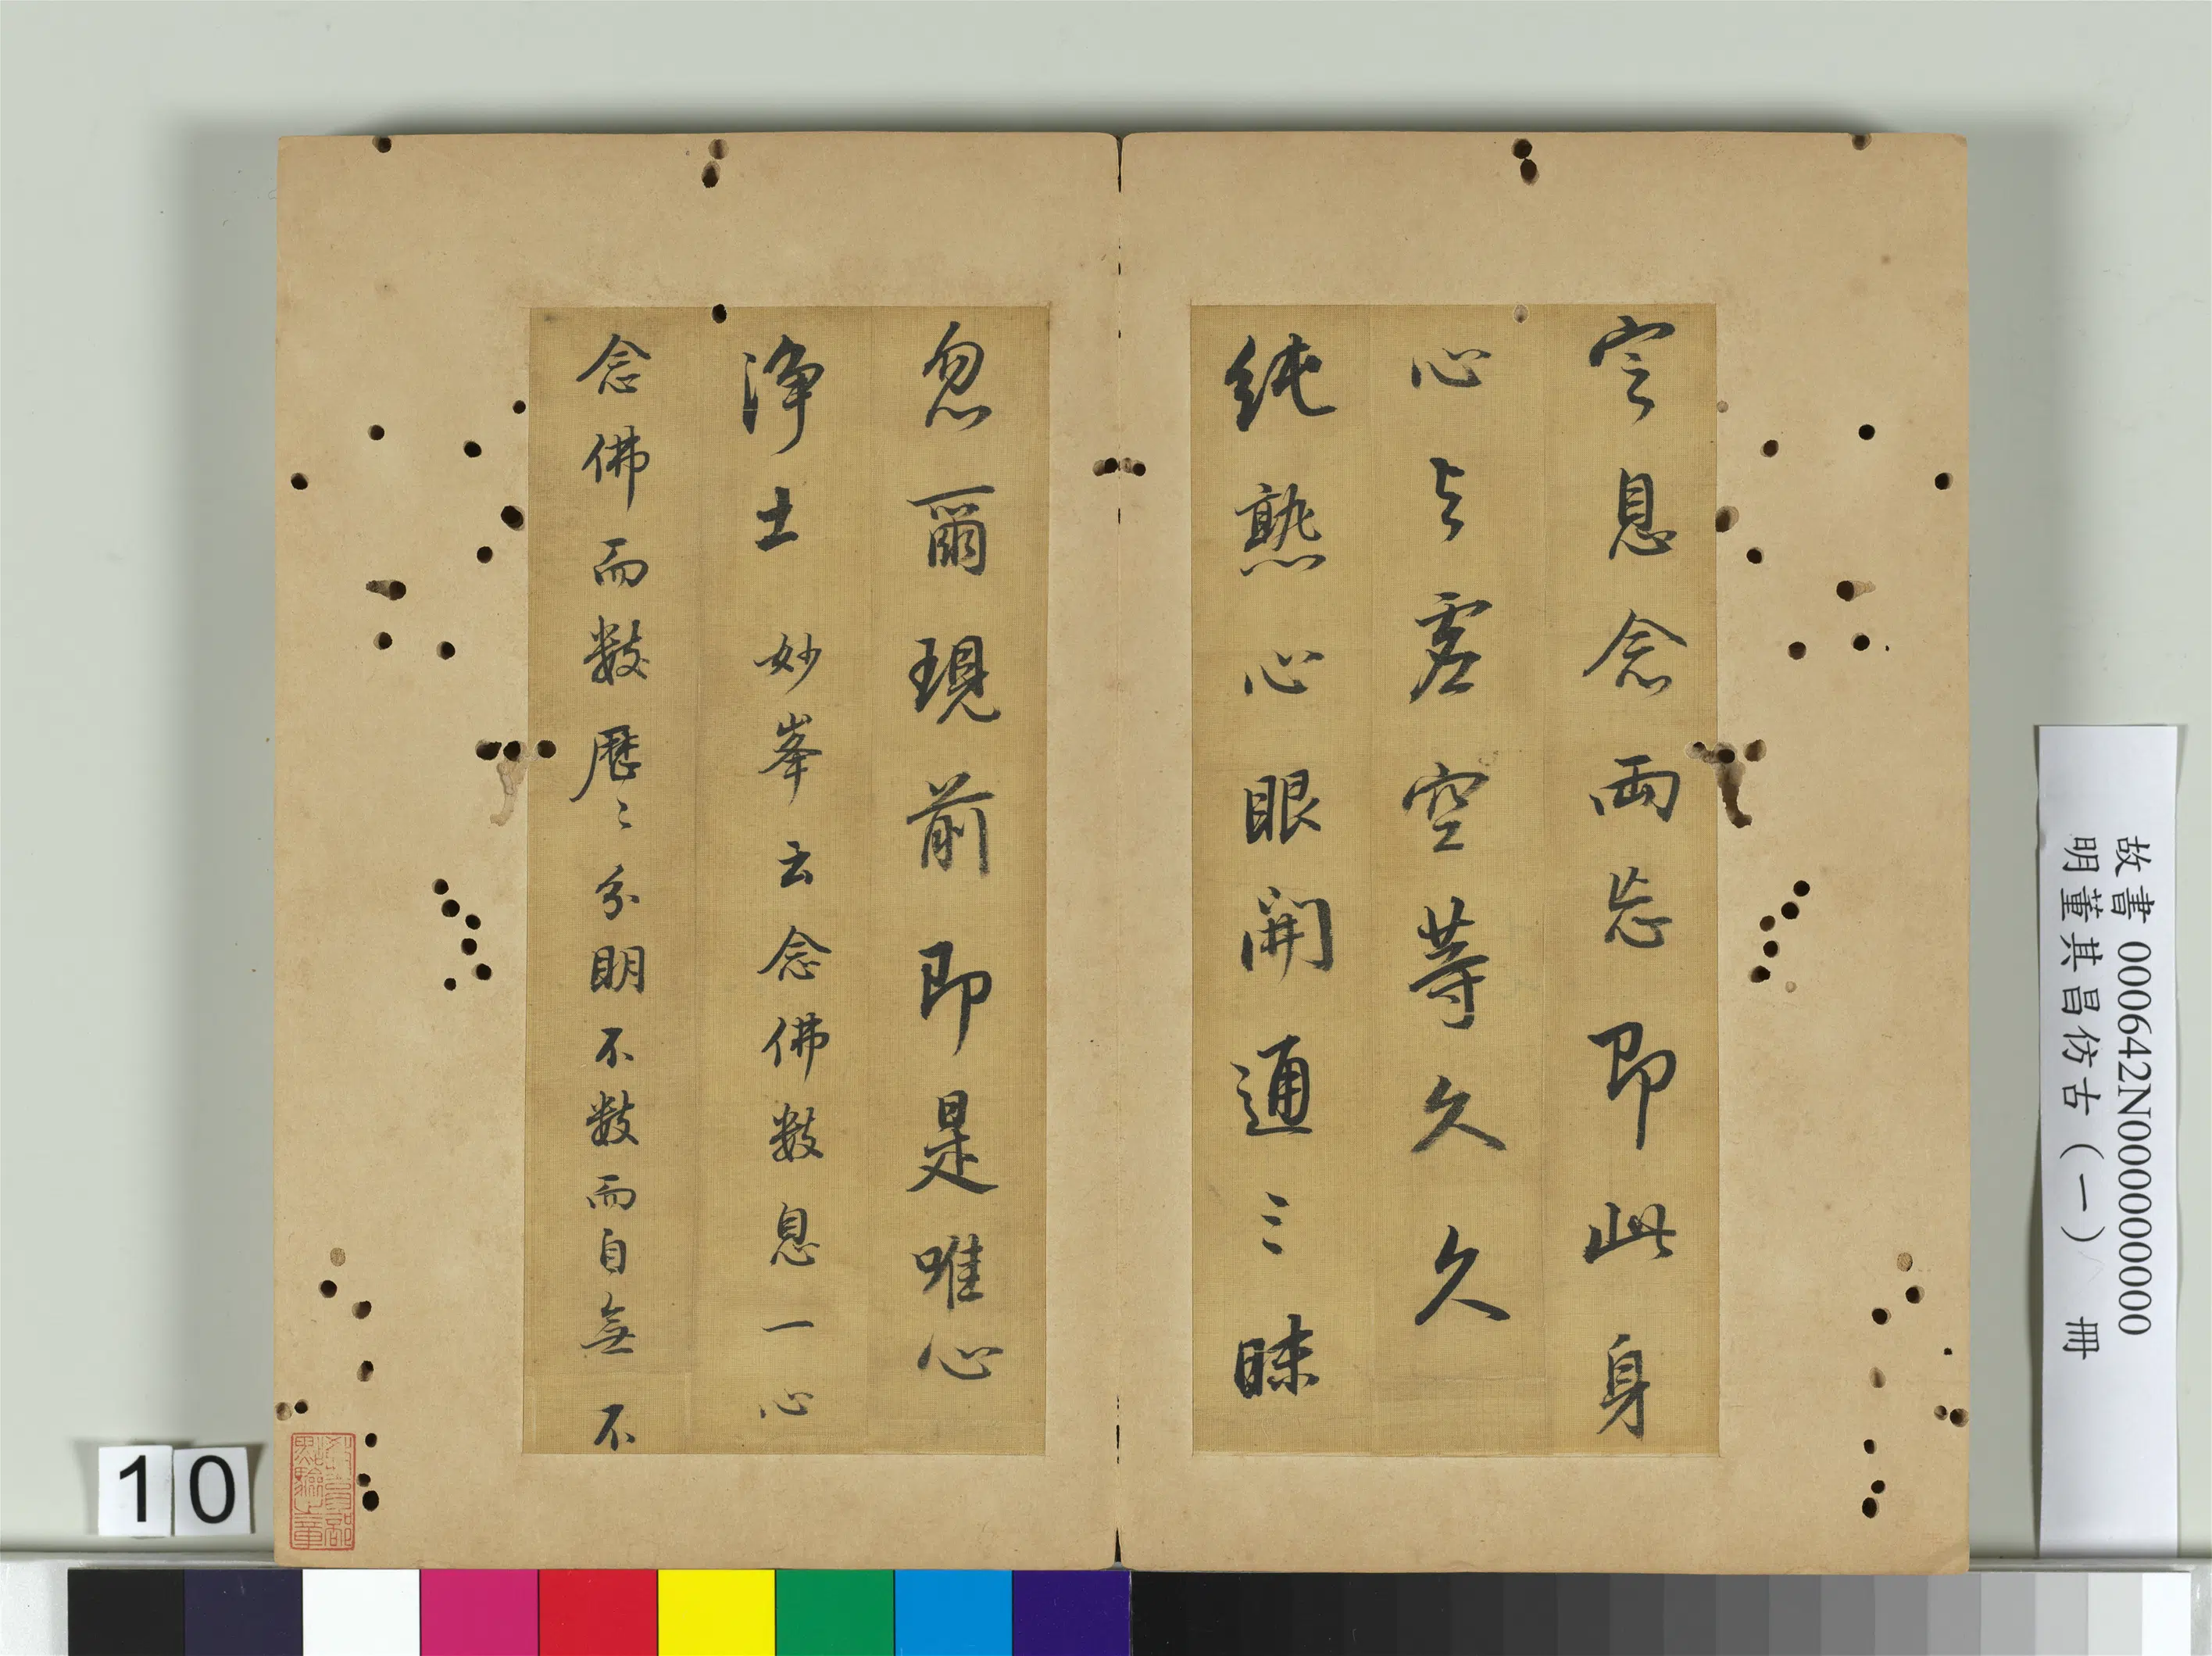 定息念兩忘即此身
心与虛空等久久
純熟心眼開通三昧
忽爾現前即是唯心
淨土 妙峯云念佛數息一心
念佛而數歷〻分明不數而自無不
教育部點驗之章
10
故書 000642N000000000
明董其昌仿古（一） 冊